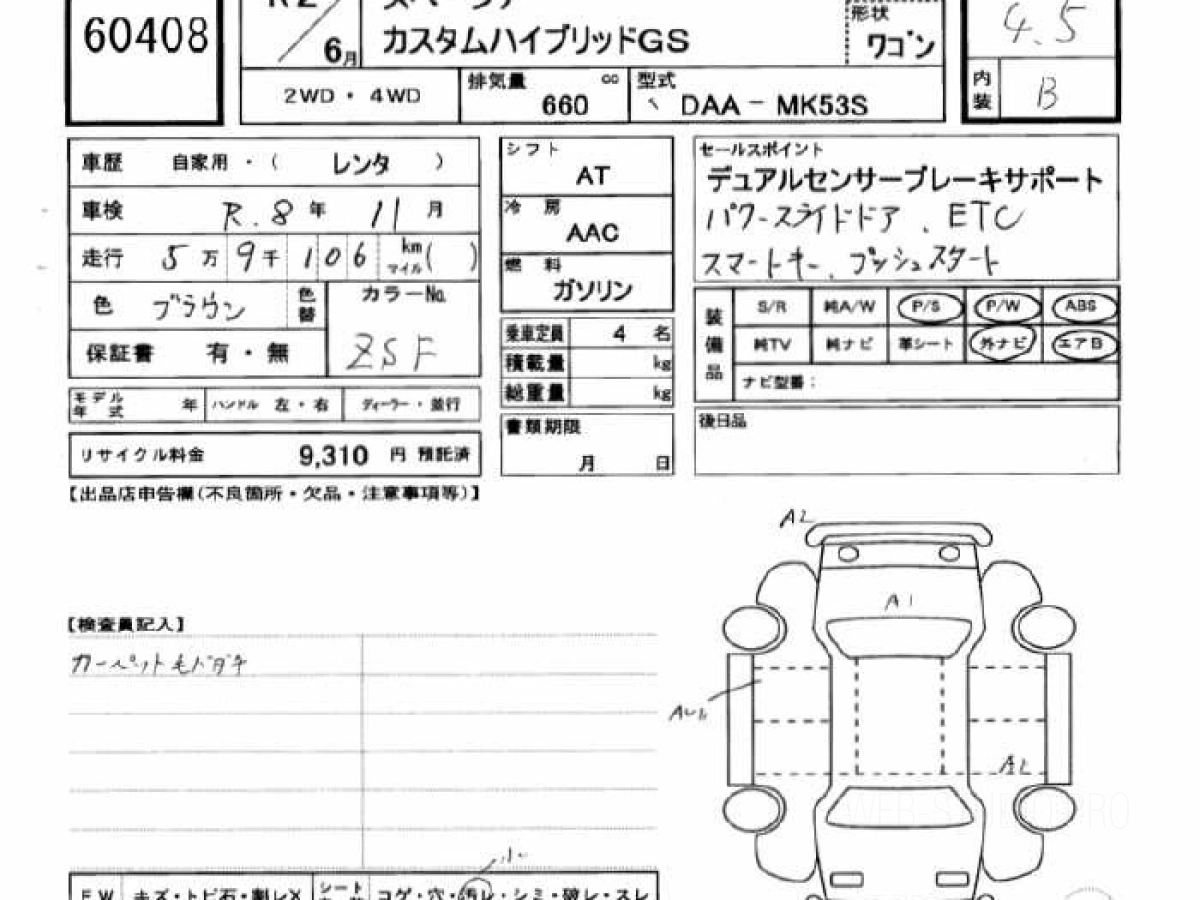 60408
R2
6月
スペーシア
カスタムハイブリッドGS
形状
ワゴン
4.5
内装
B
2WD・4WD
排気量
cc
660
型式
DAA－MK53S
車歴 自家用・( レンタ )
車検 R.8年 11月
走行 5万9千106 km マイル( )
色 ブラウン
色替
カラーNo.
ZSF
保証書 有・無
モデル年式 年
ハンドル 左・右
ディーラー・並行
リサイクル料金 9,310 円 預託済
シフト
AT
冷房
AAC
燃料
ガソリン
乗車定員 4 名
積載量 kg
総重量 kg
書類期限
月 日
セールスポイント
デュアルセンサーブレーキサポート
パワースライドドア、ETC
スマートキー、プッシュスタート
装備品
S/R 純A/W P/S P/W ABS
純TV 純ナビ 革シート 外ナビ エアB
ナビ型番：
後日品
【出品店申告欄(不良箇所・欠品・注意事項等)】
【検査員記入】
カーペット毛バダチ
A2
A1
A1
小
FW キズ・トビ石・割レX
シート
コゲ・穴・汚レ・シミ・破レ・スレ